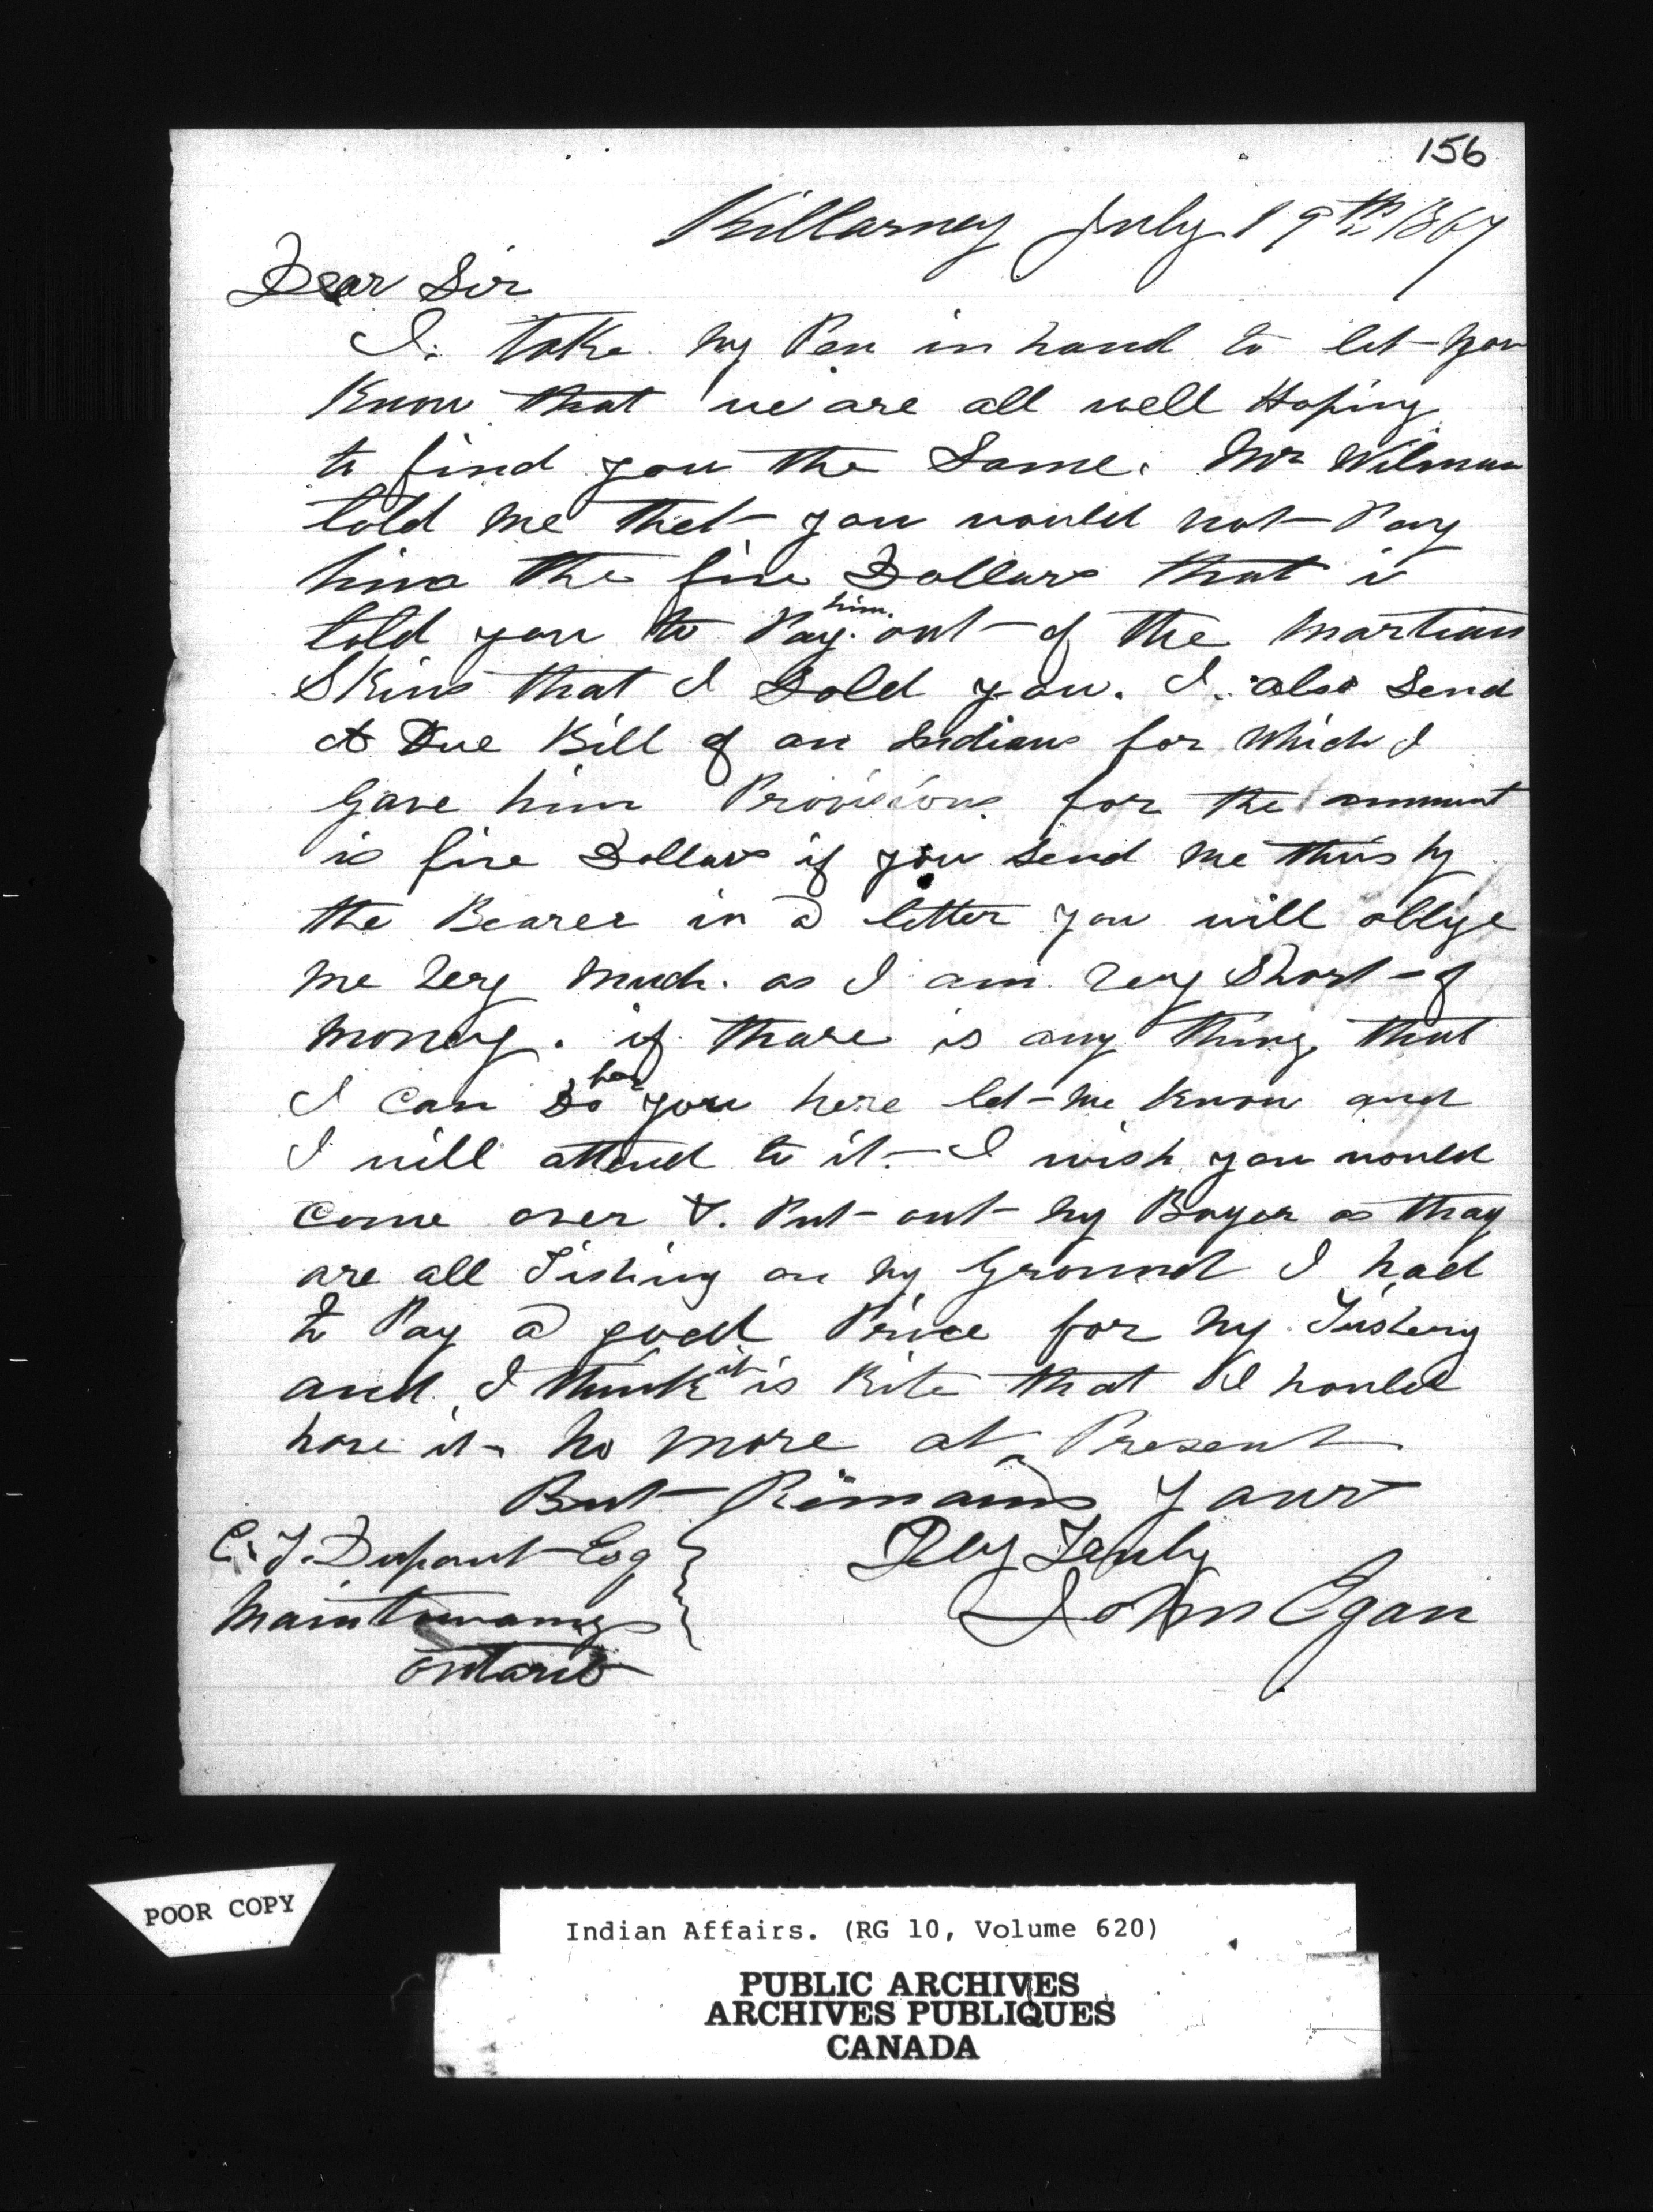 156
Killarney July 19th 1867
Dear Sir
I take my Pen in hand to let you
Know that we are all well Hoping
to find you the Same. Mr Wilman
told me thet you would not Pay
him the five Dollars that i
told you to Pay him out of the Martian
Skins that I Sold you. I also Send
A Due Bill of an Indians for which I
Gave him Provisions for the ammunt
is five Dollars if you Send me this by
the Bearer in a letter you will oblige
me very much. as I am very Short of
money. if thare is any thing that
I can Do for you here let me Know and
I will attend to it. I wish you would
come over & Put out my Boyes as thay
are all Fishing on my Ground I had
to Pay a good Price for my Fishery
and I think it is Rite that I should
have it. No more at Present
But Remains Yours
Very Truly
John Egan
C. T. Dupont Esq
Manitowaning
Ontario
POOR COPY
Indian Affairs. (RG 10, Volume 620)
PUBLIC ARCHIVES
ARCHIVES PUBLIQUES
CANADA